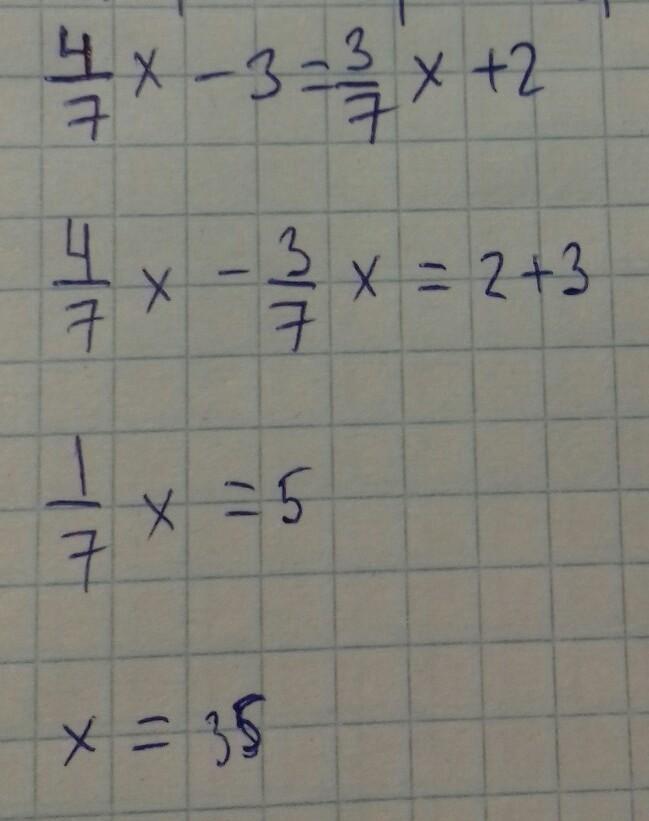 4/7 x - 3 = 3/7 x + 2
4/7 x - 3/7 x = 2 + 3
1/7 x = 5
x = 35